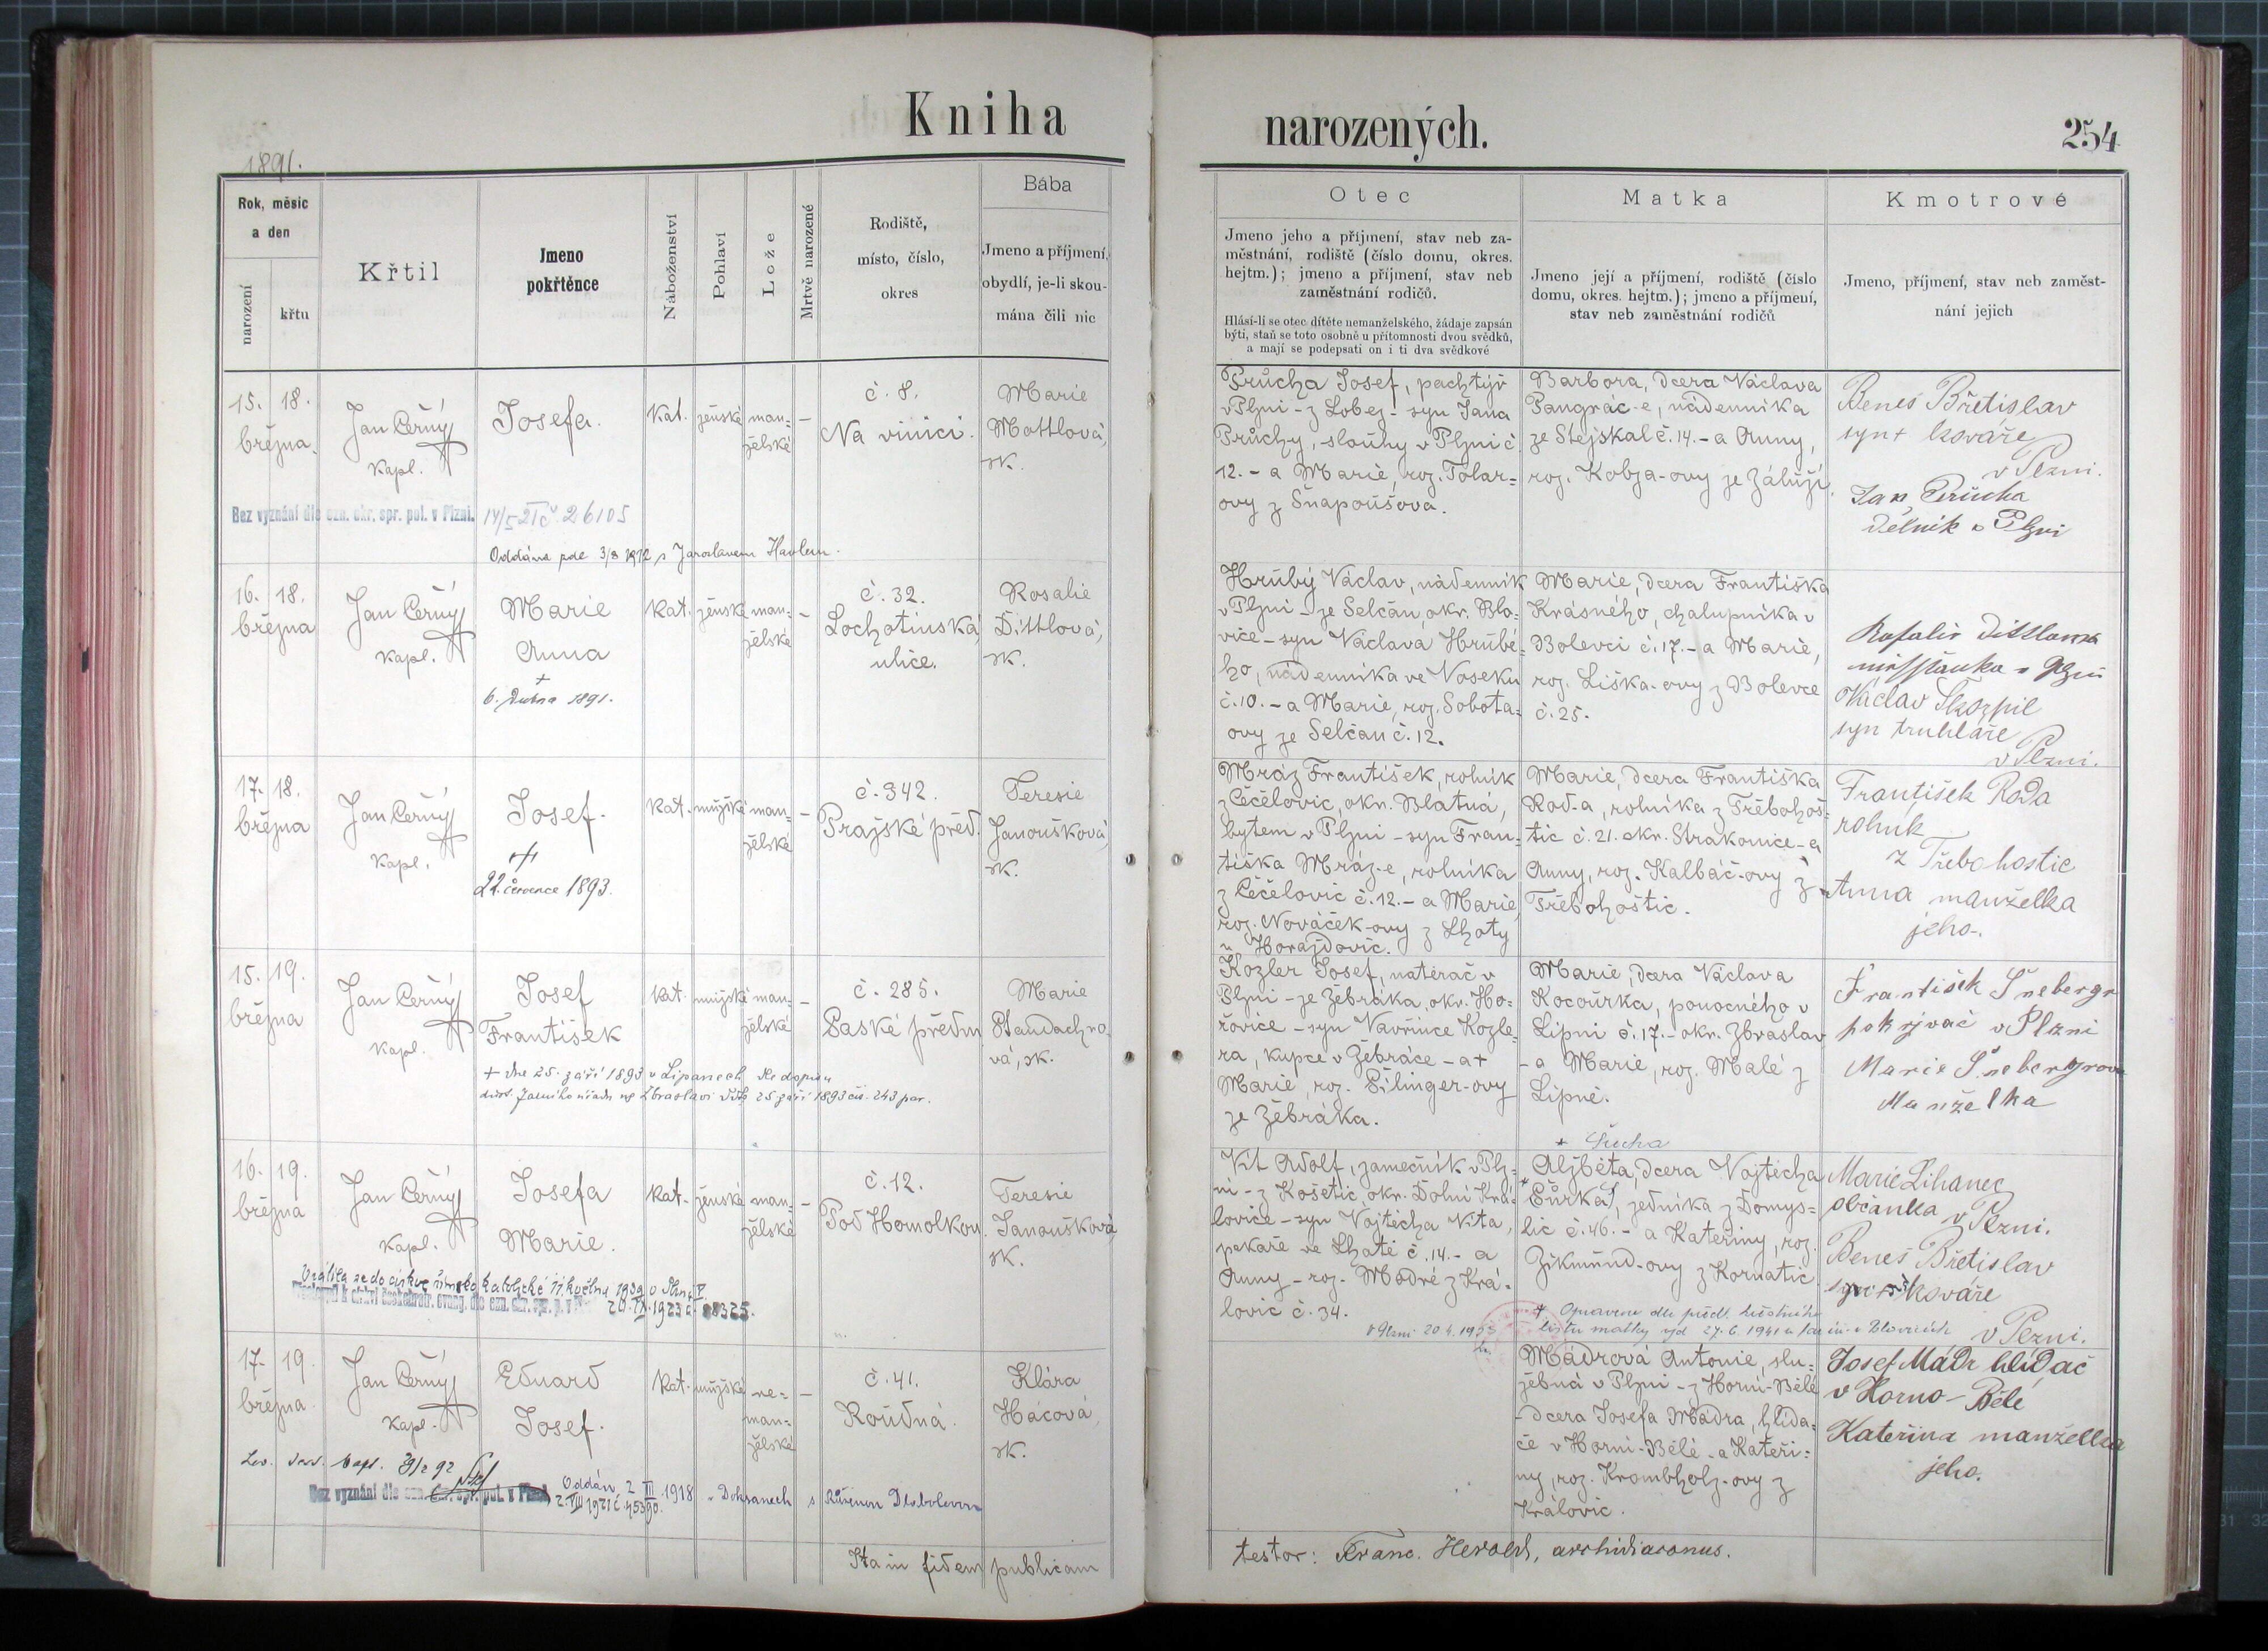 Kniha narozených.
254
1891.
Rok, měsíc
a den
narození
křtu
Křtil
Jmeno
pokřtěnce
Náboženství
Pohlaví
Lože
Mrtvě narozené
Rodiště,
místo, číslo,
okres
Bába
Jmeno a příjmení,
obydlí, je-li skou-
mána čili nic
Otec
Jmeno jeho a příjmení, stav neb za-
městnání, rodiště (číslo domu, okres.
hejtm.); jmeno a příjmení, stav neb
zaměstnání rodičů.
Hlásí-li se otec dítěte nemanželského, žádaje zapsán
býti, staň se toto osobně u přítomnosti dvou svědků,
a mají se podepsati on i ti dva svědkové
Matka
Jmeno její a příjmení, rodiště (číslo
domu, okres. hejtm.); jmeno a příjmení,
stav neb zaměstnání rodičů
Kmotrové
Jmeno, příjmení, stav neb zaměst-
nání jejich
15. 18.
března.
Jan Černý
kapl.
Josefa.
kat.
ženské
man=
želské
–
č. 8.
Na vinici.
Marie
Mottlová,
sk.
Průcha Josef, pachtýř
v Plzni - z Lobez - syn Jana
Průchy, slouhy v Plzni č.
12. - a Marie, roz. Tolar=
ovy z Šnapoušova.
Barbora, dcera Václava
Pangrác-e, nádenníka
ze Stejskal č. 14. - a Anny,
roz. Kobza-ovy ze Záluží.
Beneš Břetislav
syn + kováře
v Plzni.
Jan Průcha
dělník v Plzni
Bez vyznání dle ozn. okr. spr. pol. v Plzni. 14/5 21 č 26105
Oddána zde 3/8 1912 s Jaroslavem Havlem.
16. 18.
března
Jan Černý
kapl.
Marie
Anna
+
6. dubna 1891.
kat.
ženské
man=
želské
–
č. 32.
Lochotínská
ulice.
Rosalie
Dittlová,
sk.
Hrubý Václav, nádenník
v Plzni - ze Selčan, okr. Blo=
vice - syn Václava Hrubé=
ho, nádenníka ve Voseku
č. 10. - a Marie, roz. Sobota=
ovy ze Selčan č. 12.
Marie, dcera Františka
Krásného, chalupníka v
Bolevci č. 17. - a Marie,
roz. Liška-ovy z Bolevce
č. 25.
Rosalie Dittlova
v Plzni
Václav Škozpil
syn truhláře
v Plzni.
17. 18.
března
Jan Černý
kapl.
Josef.
+
22. července 1893.
kat.
mužské
man=
želské
–
č. 342.
Pražské před.
Teresie
Janoušková,
sk.
Mráz František, rolník
z Čečelovic, okr. Blatná,
bytem v Plzni - syn Fran=
tiška Mráz-e, rolníka
z Čečelovic č. 12. - a Marie,
roz. Nováček-ovy z Lhoty
u Horažďovic.
Marie, dcera Františka
Rod-a, rolníka z Třebohoš=
tic č. 21. okr. Strakonice - a
Anny, roz. Kalbáč-ovy z
Třebohoštic.
František Roda
rolník
z Třebohostic
Anna manželka
jeho.
15. 19.
března
Jan Černý
kapl.
Josef
František
kat.
mužské
man=
želské
–
č. 285.
Saské předm.
Marie
Standachro
vá, sk.
+ dne 25. září 1893 v Lipanech dle dopisu
Kozler Josef, natěrač v
Plzni - ze Žebráka, okr. Ho=
řovice - syn Vavřince Kozle=
ra, kupce v Žebráce - a +
Marie, roz. Pilinger-ovy
ze Žebráka.
Marie, dcera Václava
Kocourka, ponocného v
Lipni č. 17. - okr. Zbraslav
- a Marie, roz. Malé z
Lipně.
František Šnebergr
pokrývač v Plzni
Marie Šnebergrova
Manželka
16. 19.
března
Jan Černý
kapl.
Josefa
Marie.
kat.
ženské
man=
želské
–
č. 12.
Pod Homolkou
Teresie
Janoušková
sk.
Vít Adolf, zámečník v Plz=
ni - z Košetic, okr. Dolní Krá=
lovice - syn Vojtěcha Víta,
pekaře ve Lhotě č. 14. - a
Anny - roz. Modré z Krá=
lovic č. 34.
Alžběta, dcera Vojtěcha
lic č. 46. - a Kateřiny, roz.
Zikmund-ovy z Kornatic
Marie Lihanec
občanka v Plzni.
Beneš Břetislav
syn + kováře
v Plzni.
Vrátila se do církve římsko katolické 11. května 1939
v Plzni 20.4.1955
17. 19.
března.
Jan Černý
kapl.
Eduard
Josef.
kat.
mužské
ne=
man=
želské
–
č. 41.
Roudná.
Klára
Hácová,
sk.
Mádrová Antonie, slu=
žebná v Plzni - z Horní-Bělé
- dcera Josefa Mádra, hlída=
če v Horní-Bělé - a Kateři=
ny, roz. Krombholz-ovy z
Královic.
Josef Mádr hlídač
v Horno-Bělé
Kateřina manželka
jeho.
Bez vyznání dle ozn. okr. spr. pol. v Plzni
Oddán 2 III 1918 v Doksanech s Růženou
Ita in fidem publicam
testor: Franc. Herold, archidiaconus.